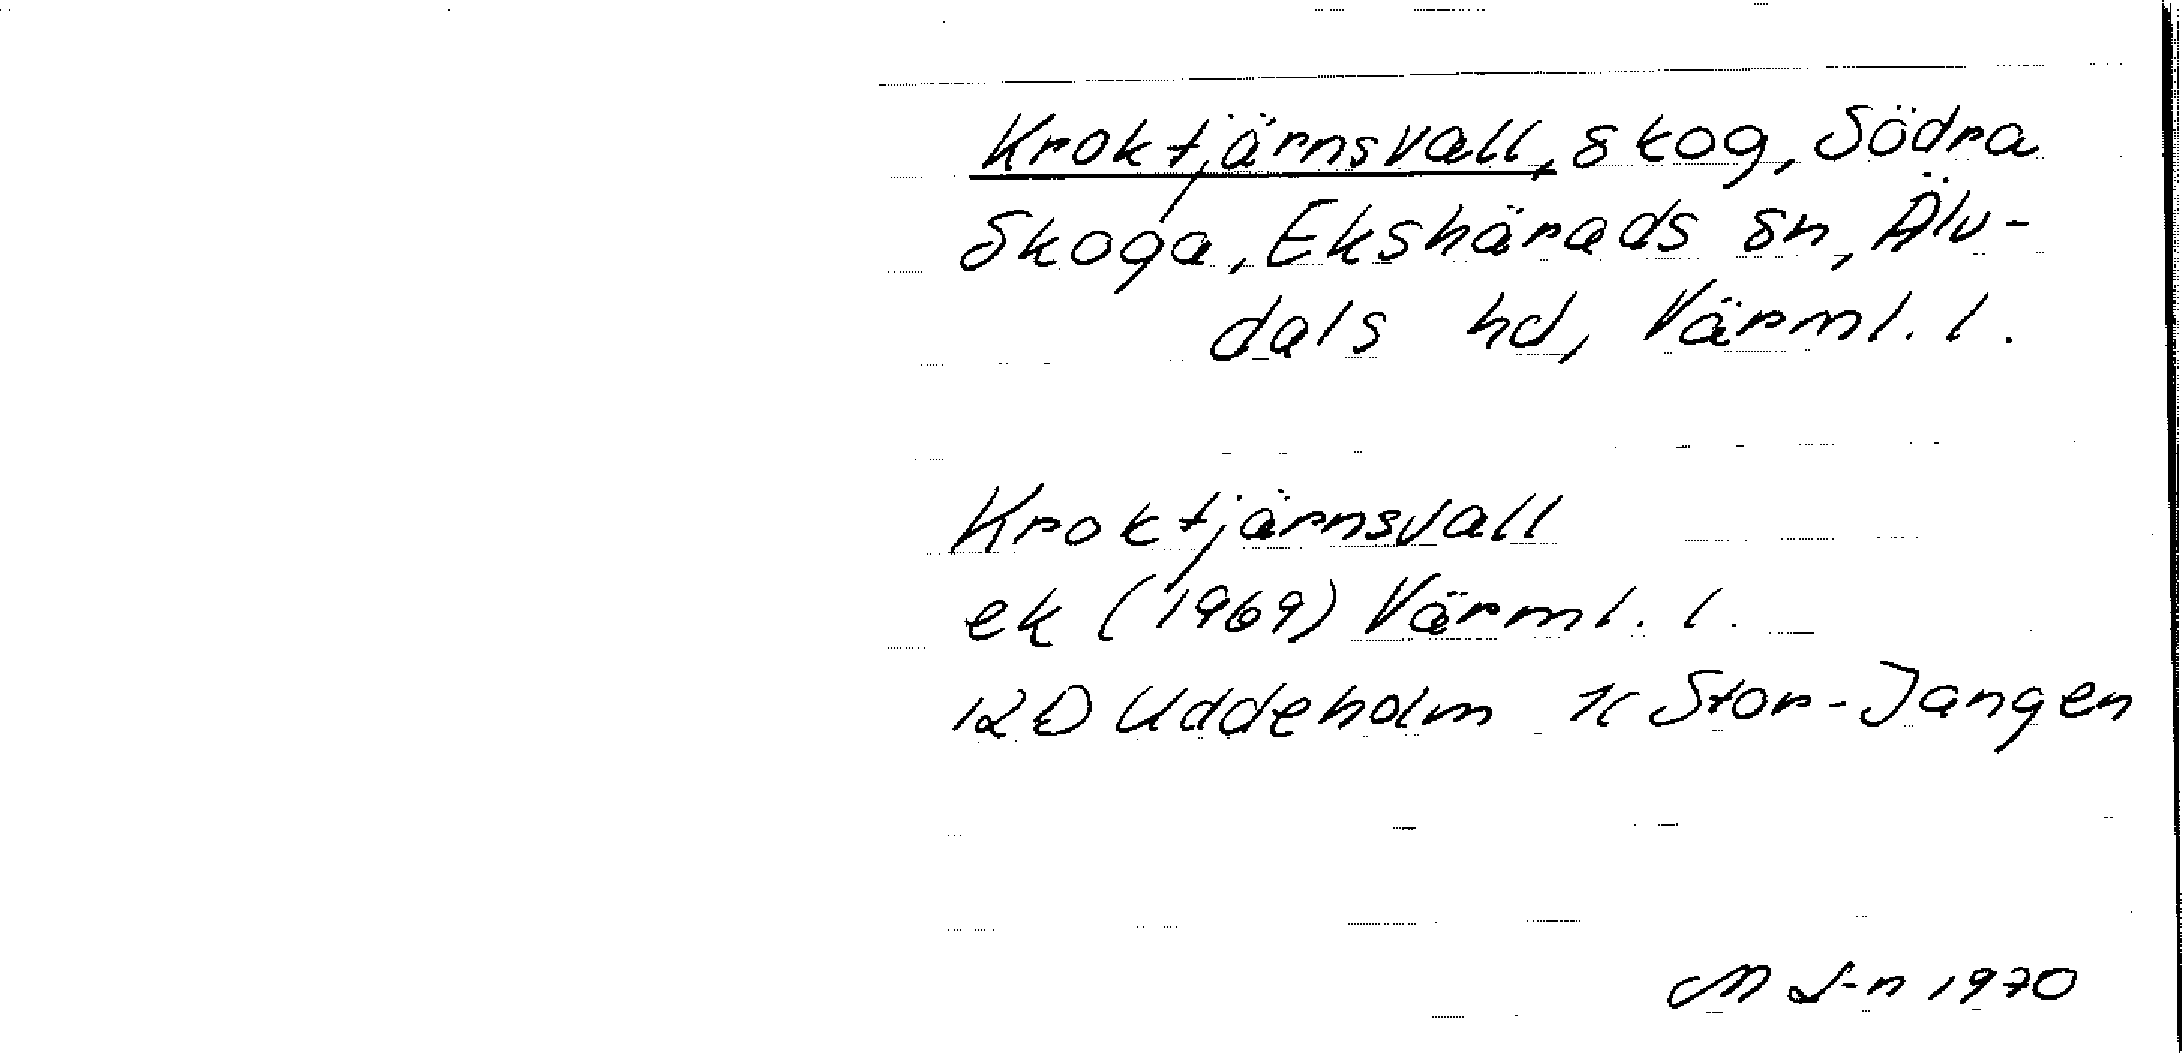 Kroktjärnsvall, skog, Södra
Skoga, Ekshärads sn, Älv-
dals hd, Värml. l.
Kroktjärnsvall
ek (1969) Värml. l.
12D Uddeholm 1c Stor-Jangen
M L-n 1970